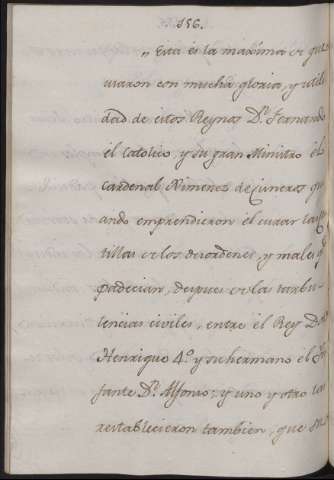 156.
„ Esta es la maxima de que
usaron con mucha gloria, y utili
dad de estos Reynos Dn. Fernando
el Catolico y su gran Ministro el
Cardenal Ximenez de Cisneros qu
ando emprendieron el curar las
tillas de los desordenes, y males q
padecian, despues de la turbu
lencias civiles, entre el Rey Dn.
Henrique 4º. y su hermano el In
fante Dn. Alfonso; y uno y otro la
restablecieron tambien, que